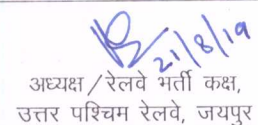 21/8/19
अध्यक्ष/रेलवे भर्ती कक्ष,
उत्तर पश्चिम रेलवे, जयपुर